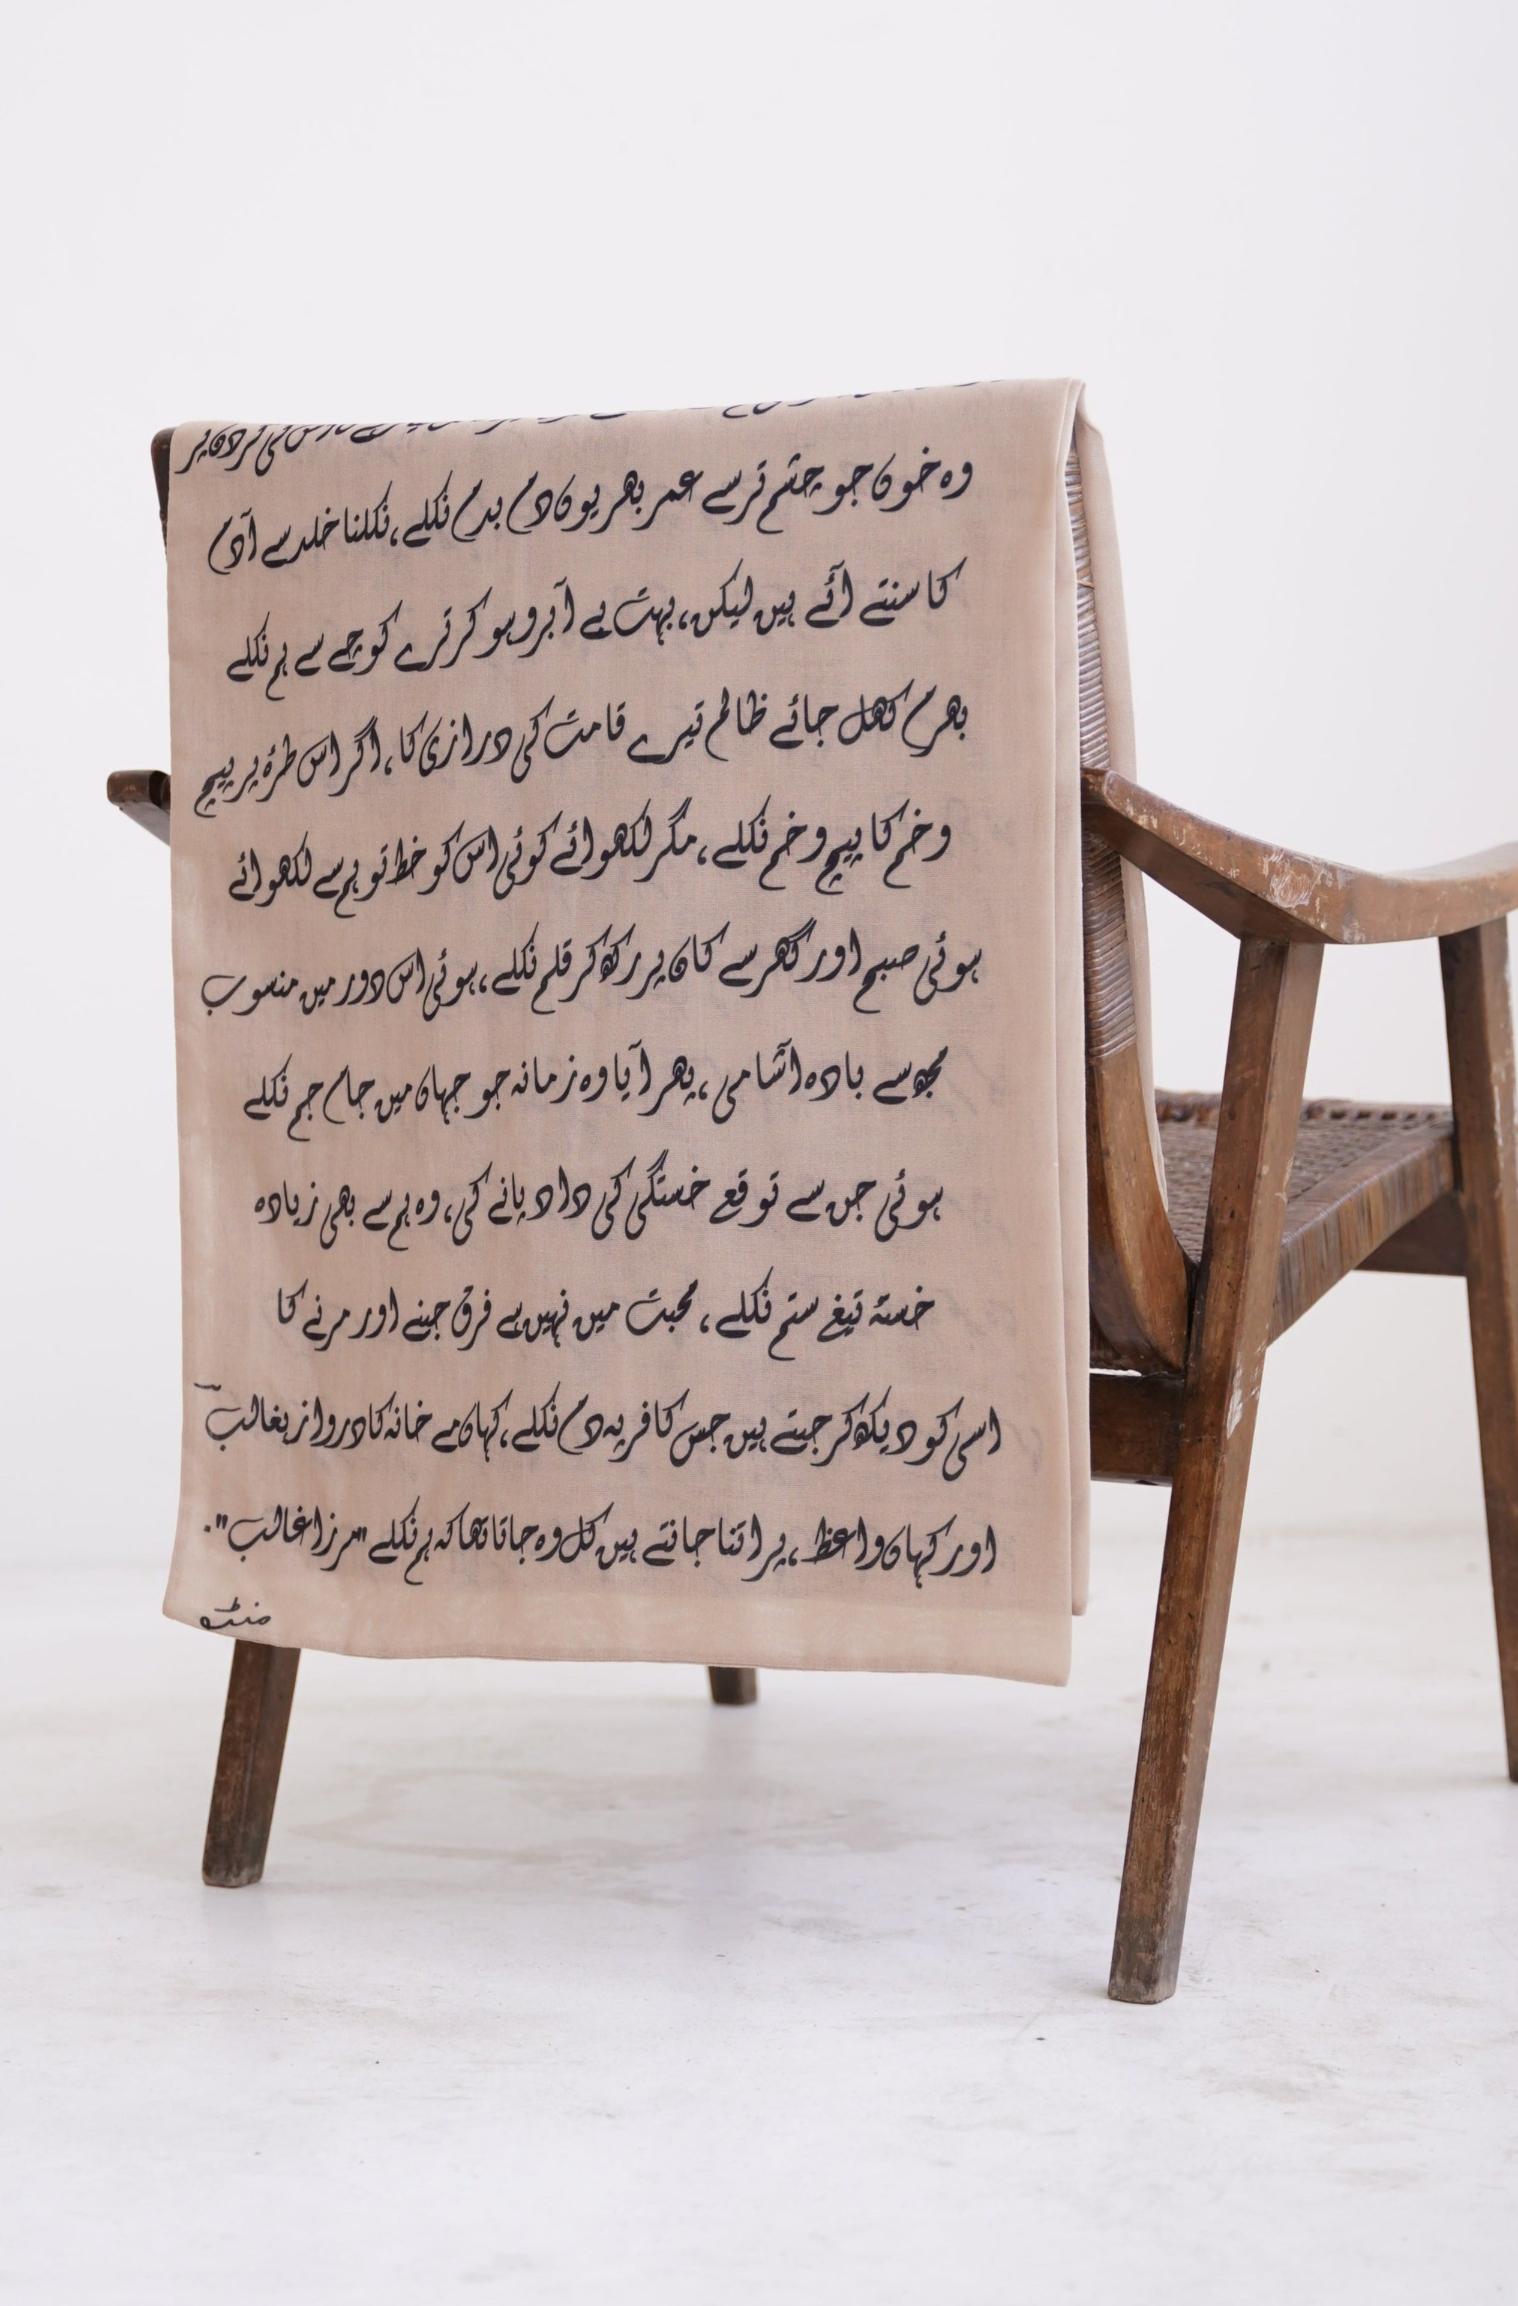 کی گردن پر
وہ خون جو چشم تر سے عمر بھر یوں دم بدم نکلے، نکلنا خلد سے آدم
کا سنتے آئے ہیں لیکن، بہت بے آبرو ہو کر ترے کوچے سے ہم نکلے
بھرم کھل جائے ظالم تیرے قامت کی درازی کا، اگر اس طرۂ پر پیچ
و خم کا پیچ و خم نکلے، مگر لکھوائے کوئی اس کو خط تو ہم سے لکھوائے
ہوئی صبح اور گھر سے کان پر رکھ کر قلم نکلے، ہوئی اس دور میں منسوب
مجھ سے بادہ آشامی، پھر آیا وہ زمانہ جو جہان میں جام جم نکلے
ہوئی جن سے توقع خستگی کی داد پانے کی، وہ ہم سے بھی زیادہ
خستۂ تیغ ستم نکلے، محبت میں نہیں ہے فرق جینے اور مرنے کا
اسی کو دیکھ کر جیتے ہیں جس کافر پہ دم نکلے، کہاں مے خانہ کا دروازہ غالب
اور کہاں واعظ، پر اتنا جانتے ہیں کل وہ جاتا تھا کہ ہم نکلے "مرزا غالب".
منٹو